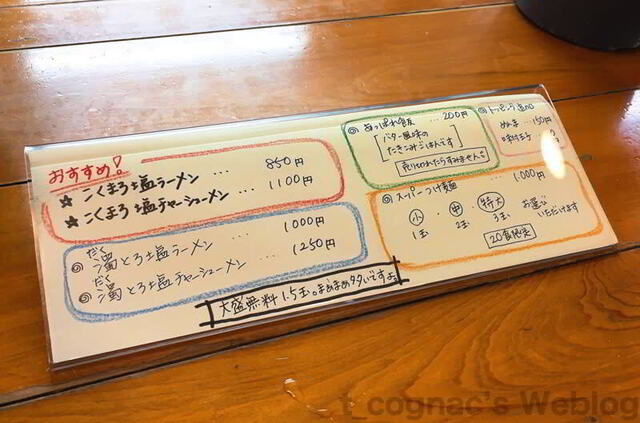 おすすめ!
☆ こくまろ塩ラーメン ... 850円
☆ こくまろ塩チャーシューメン ... 1100円
だく
◎ 濁とろ塩ラーメン ... 1000円
だく
◎ 濁とろ塩チャーシューメン ... 1250円
大盛無料 1.5玉。まあまあ多いですよ。
◎ あっぱれ飯 ... 200円
バター風味の
たきこみごはんです
売り切れたらすみません。
◎ トッピング追加
味付玉子
◎ スーパーつけ麺 ... 1000円
小 ・ 中 ・ 特大 お選び
1玉 2玉 3玉 いただけます
20食限定
t_cognac's Weblog